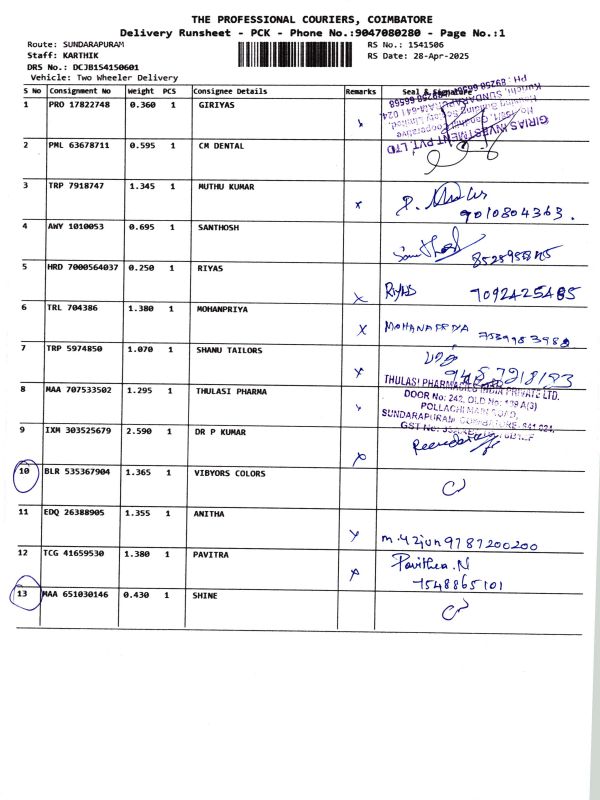 THE PROFESSIONAL COURIERS, COIMBATORE
Delivery Runsheet - PCK - Phone No.:9047080280 - Page No.:1
Route: SUNDARAPURAM
RS No.: 1541506
Staff: KARTHIK
RS Date: 28-Apr-2025
DRS No.: DCJB154150601
Vehicle: Two Wheeler Delivery
S No Consignment No Weight PCS Consignee Details Remarks Seal & Signature
1 PRO 17822748 0.360 1 GIRIYAS
GIRIAS INVESTMENT PVT. LTD
2 PML 63678711 0.595 1 CM DENTAL
3 TRP 7918747 1.345 1 MUTHU KUMAR x
9010804363.
4 AWY 1010053 0.695 1 SANTHOSH
Santhosh
5 HRD 7000564037 0.250 1 RIYAS x RIYAS 7092425485
6 TRL 704386 1.380 1 MOHANPRIYA x MOHANAPRIYA
7 TRP 5974850 1.070 1 SHANU TAILORS x
8 MAA 707533502 1.295 1 THULASI PHARMA
THULASI PHARMACIES INDIA PRIVATE LTD.
DOOR No: 242, OLD No: 139 A(3)
POLLACHI MAIN ROAD,
SUNDARAPURAM, COIMBATORE- 641 024.
GST No:
9 IXM 303525679 2.590 1 DR P KUMAR x
10 BLR 535367904 1.365 1 VIBYORS COLORS
11 EDQ 26388905 1.355 1 ANITHA x
9787200200
12 TCG 41659530 1.380 1 PAVITRA x Pavithra.N
7548865101
13 MAA 651030146 0.430 1 SHINE